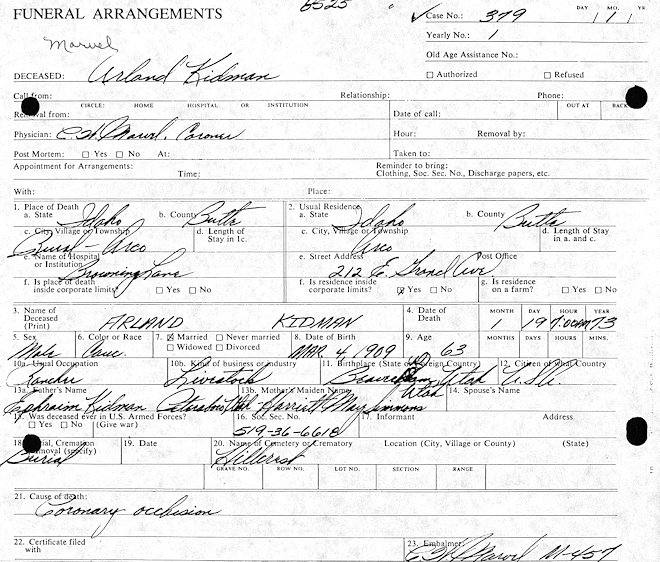 FUNERAL ARRANGEMENTS
DAY MO. YR.
✓ Case No.: 379 1
Marvel
Yearly No.: 1
Old Age Assistance No.:
DECEASED: Arland Kidman
☐ Authorized ☐ Refused
Call from: Relationship: Phone:
CIRCLE: HOME HOSPITAL OR INSTITUTION OUT AT BACK
from: Date of call:
Physician: Marvel, Coroner Hour: Removal by:
Post Mortem: ☐ Yes ☐ No At: Taken to:
Appointment for Arrangements: Time:
Reminder to bring:
Clothing, Soc. Sec. No., Discharge papers, etc.
With: Place:
1. Place of Death 2. Usual Residence
a. State Idaho b. County Butte a. State Idaho b. County Butte
c. City, Village or Township Rural - Arco d. Length of Stay in 1c. c. City, Village or Township Arco d. Length of Stay in a. and c.
e. Name of Hospital or Institution Browning Lane e. Street Address 212 E. Grand Ave Post Office
f. Is place of death inside corporate limits? ☐ Yes ☐ No f. Is residence inside corporate limits? ☒ Yes ☐ No g. Is residence on a farm? ☐ Yes ☐ No
3. Name of Deceased (Print) ARLAND KIDMAN 4. Date of Death MONTH DAY HOUR YEAR
1 19 73
5. Sex Male 6. Color or Race Cauc. 7. ☒ Married ☐ Never married ☐ Widowed ☐ Divorced 8. Date of Birth MAR. 4, 1909 9. Age 63 MONTHS DAYS HOURS MINUTES
10a. Usual Occupation Rancher 10b. Kind of business or industry Livestock 11. Birthplace (State or Foreign Country) Utah 12. Citizen of what Country U.S.A.
13a. Father's Name Ephraim Kidman 13b. Mother's Maiden Name Harriett May Simmons Utah 14. Spouse's Name
15. Was deceased ever in U.S. Armed Forces? ☐ Yes ☐ No (Give war) 16. Soc. Sec. No. 519-36-6618 17. Informant Address
18. Burial, Cremation Removal (specify) Burial 19. Date 20. Name of Cemetery or Crematory Hillcrest Location (City, Village or County) (State)
GRAVE NO. ROW NO. LOT NO. SECTION RANGE
21. Cause of death:
Coronary occlusion
22. Certificate filed with 23. Embalmer: Marvel M-457